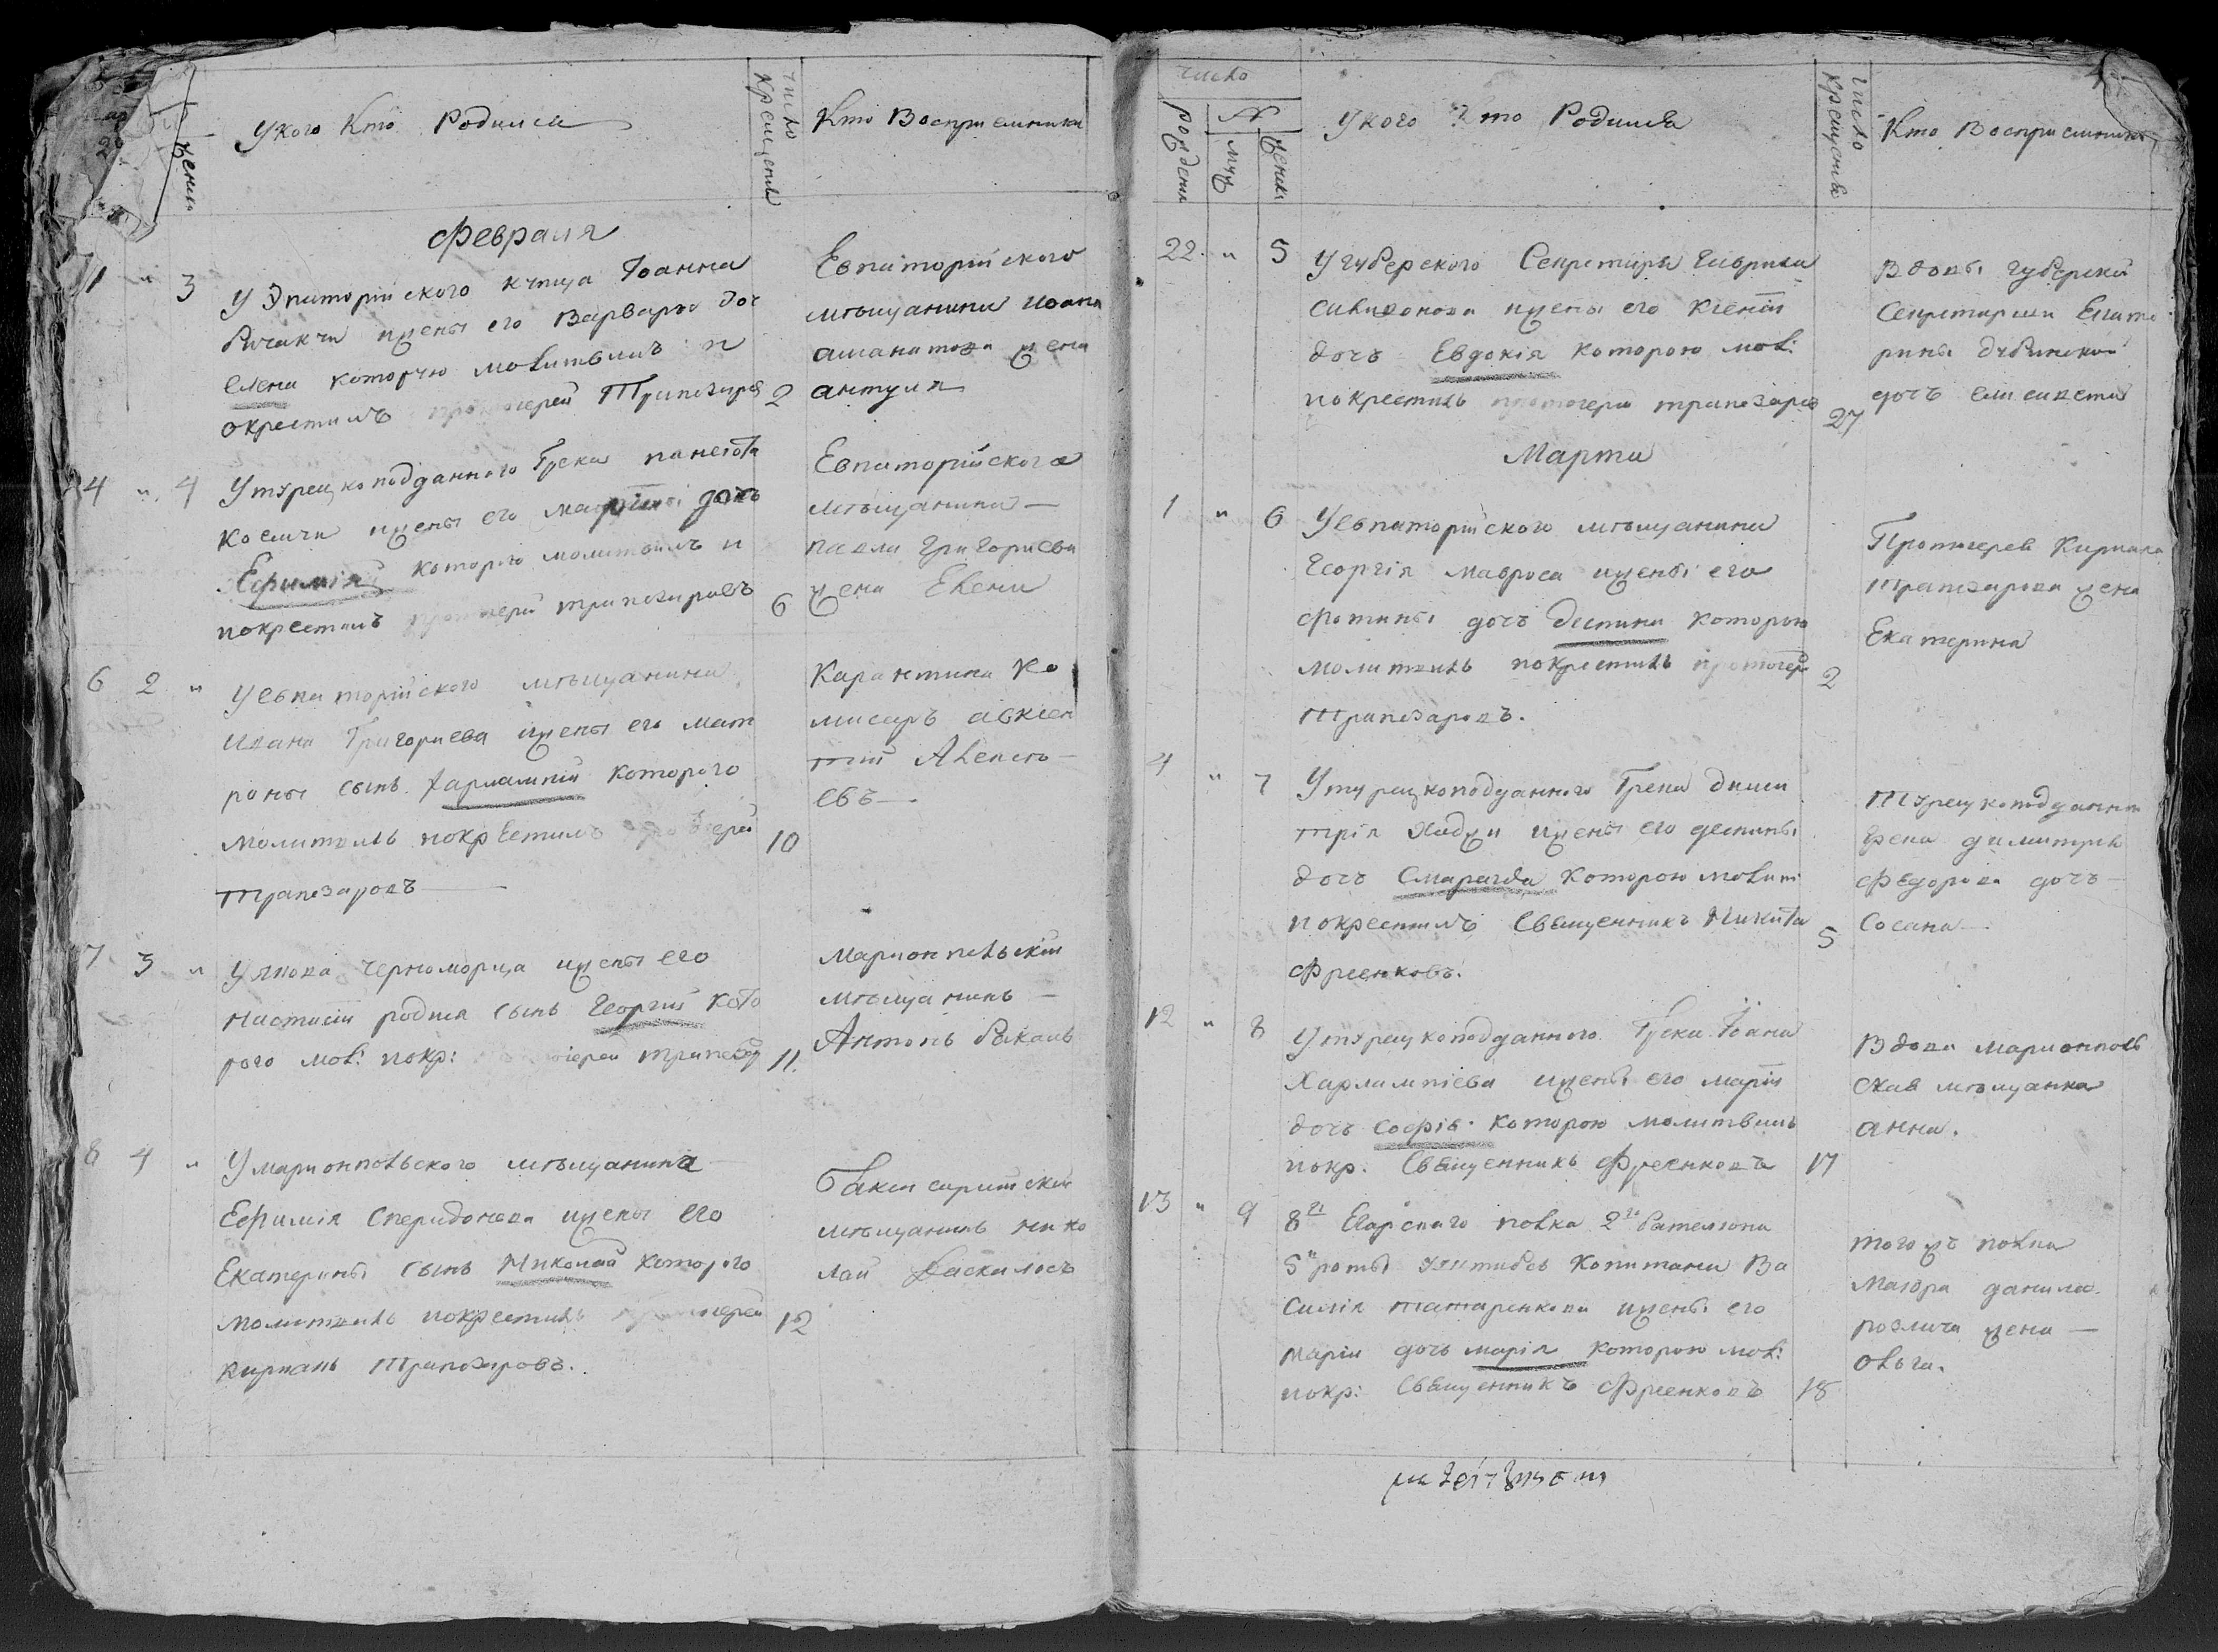 женск
У кого Кто Родился
Число Крещения
Кто Восприемники
Февраля
1 " 3
У Эпаторийского купца Иоанна
бичакчи ижены его Варвары доч
Елена которую молитвилъ и
окрестилъ протоиерей Трапезаров
2
Евпаторийского
мещанина иоана
аманатова жена
антуля
4 " 4
У турецкоподданного Грека панегота
Космичи ижены его дочь
Ефимія которою молитвилъ и
покрестилъ протоиерей трапезаровъ
6
Евпаторийского
мещанина —
павла григориева
жена Елена
6 2 "
У евпаторійского мещанина
ивана Григориева ижены его мат
роны сынъ Харлампий которого
молитвилъ покрестилъ протоиерей
трапезаровъ
10
Карантина Ко
мисаръ авксен
тий Алексе
евъ —
7 3 "
У якова черноморца ижены его
Настасии родился сынъ Георгий кото
рого мол: покр: протоиерей трапезар
11.
Мариопольский
мещанинъ —
Антонъ бакаль
8 4 "
У мариопольского мещанина
Ефимія Спиридонова ижены его
Екатерины сынъ Николай которого
молитвилъ покрестилъ протоиерей
кирианъ Трапезаровъ.
12
мещанинъ нико
лай
число
рождения
№
муж
женск
У кого Кто Родился
Число Крещения
Кто Восприемники
22. " 5
У губерского Секретаря Гаврила
ижены его
дочъ Евдокія которою мол:
покрестилъ протоиерей трапезаров
27
Вдовы губерской
Секретарши Екате
рины дубинской
дочъ елисавета
Марта
1 " 6
У евпаторійского мещанина
Георгія мавроса ижены его
фотины дочъ деспина которою
молитвилъ покрестилъ протоиере
Трапезаровъ.
2
Протоиерея Кириана
трапезарова жена
Екатерина
4 " 7
У турецкоподданного Грека дими
трія Хаджи ижены его деспины
дочъ Смарагда которою молит
покрестилъ Священникъ Никита
Фреенковъ.
5
Турецкоподданн
Грека димитрия
Федорова дочъ —
Сосана —
12 " 8
У турецкоподданного Грека Иоана
Харлампіева ижены его маріи
дочъ Софія. которою молитвилъ
покр: Священникъ Фреенковъ
17
Вдова мариополь
ская мещанка
анна.
13 " 9
8го Егарскаго полка 2го баталиона
5й роты Капитана Ва
силія татаренкова ижены его
маріи дочъ марія которою мол:
покр: Священникъ Фреенковъ
18
тогожъ полка
Маіора данила
розлича жена —
ольга.